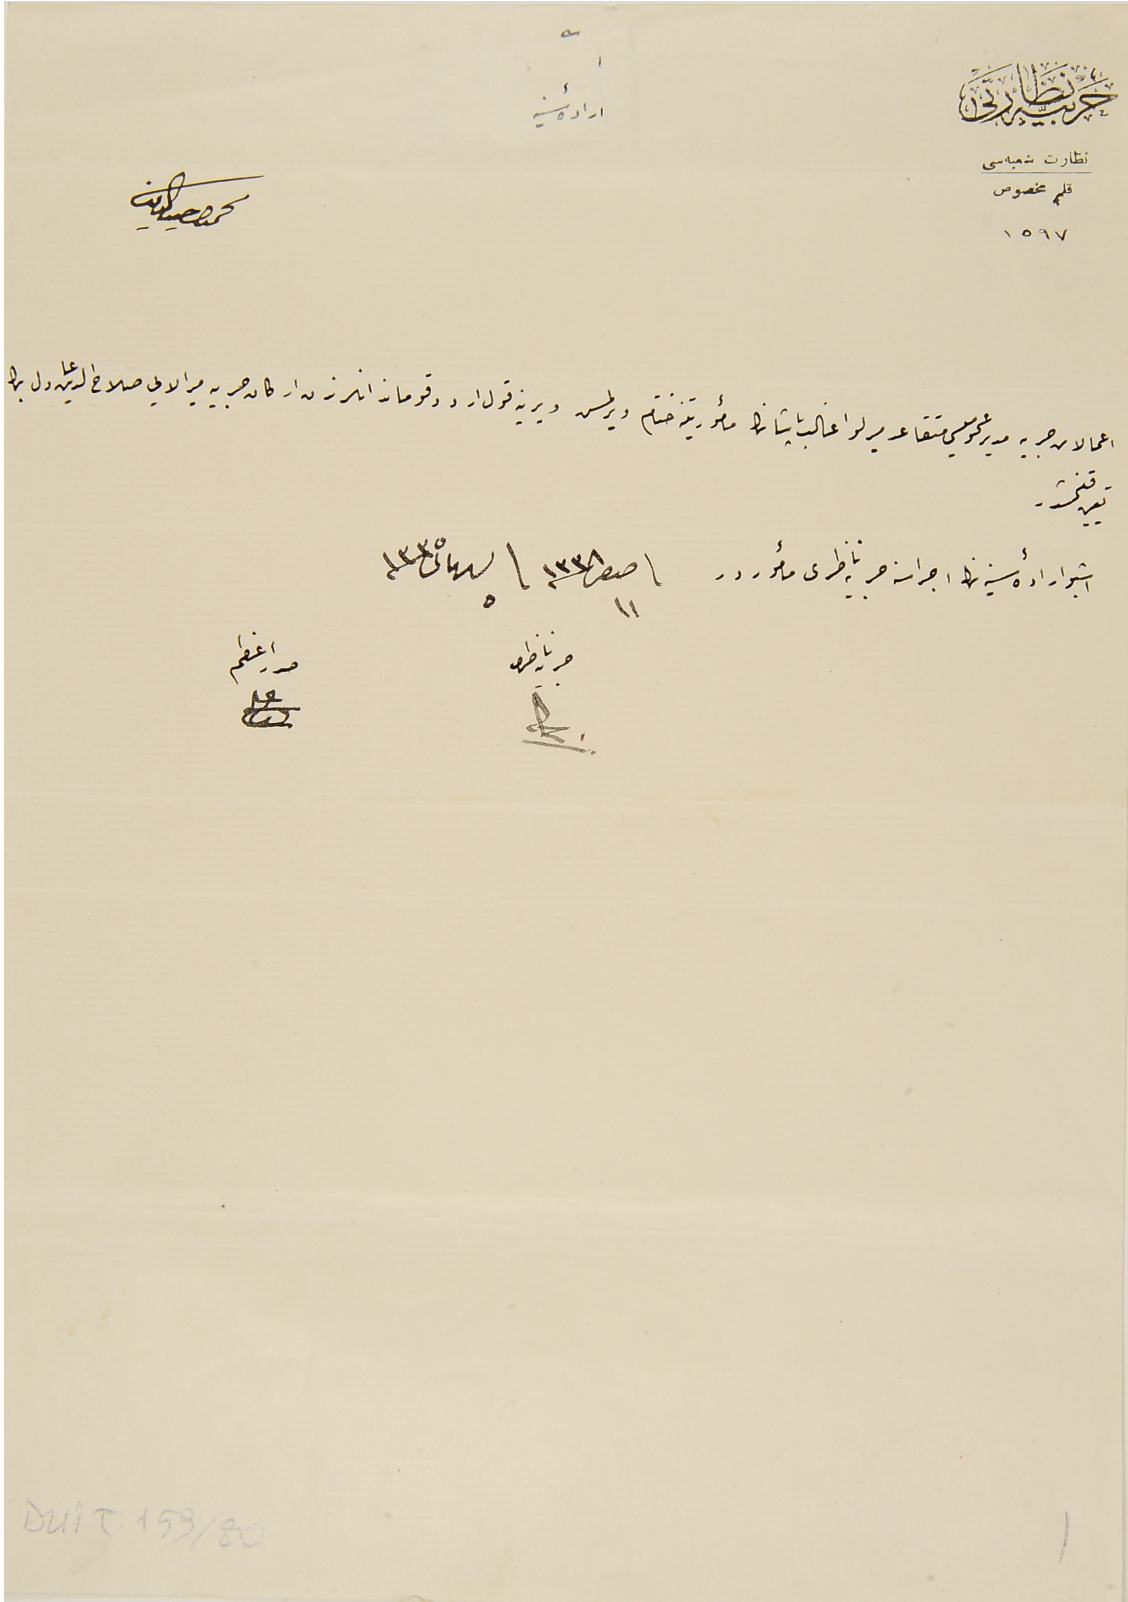 حربیه نظارتی
نظارت شعبه‌سی
قلم مخصوص
١٥٩٧
اراده سنیه
محمد وحیدالدین
اعمالات حربیه مدیر عمومیسی متقاعد میرلوا غالب پاشانك مأموریتنه ختام ویرلمش ویرینه قول اردو قوماندانلرندن اركان حربیه میرالایی صلاح الدین عادل بك
تعیین قلنمشدر
اشبو اراده سنیه‌نك اجراسنه حربیه ناظری مأموردر
١١ صفر ١٣٣٨
٥ ١٣٣٥
حربیه ناظری
صدر اعظم
DUİT 159/80